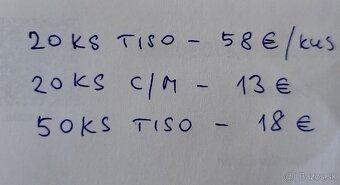 20 KS TISO - 58 € / kus
20 KS C/M - 13 €
50 KS TISO - 18 €
© Bazos.sk